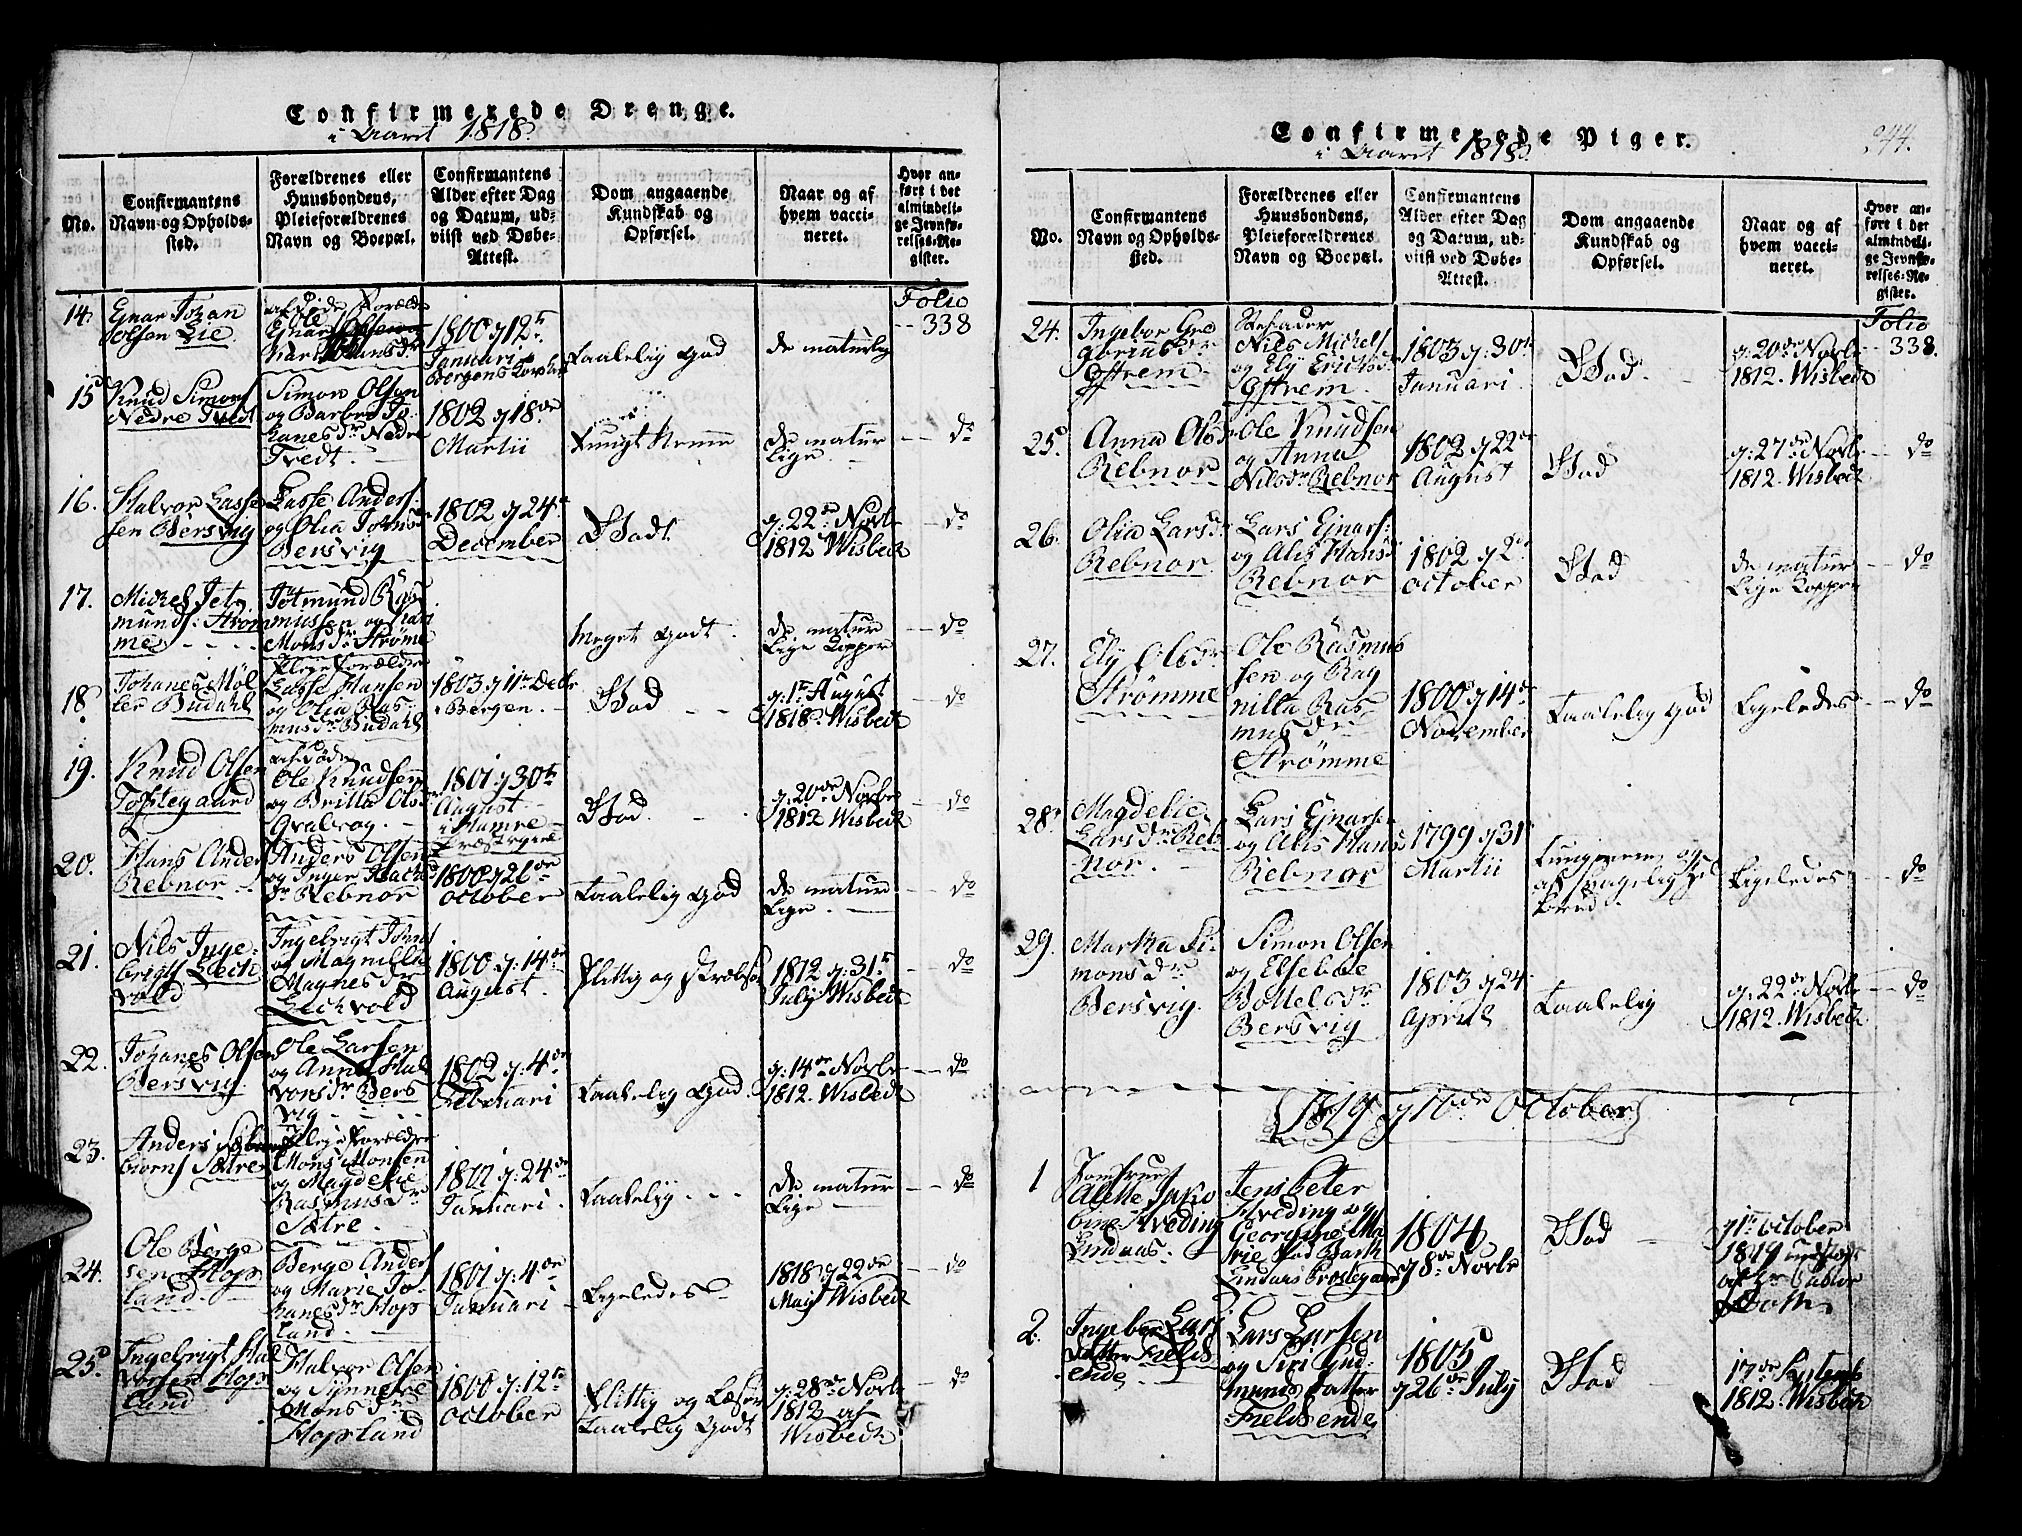 Confirmerede Drenge.
i Aaret 1818.
No.
Confirmantens Navn og Opholds-sted.
Forældrenes eller Huusbondens, Pleieforældrenes Navn og Boepæl.
Confirmantens Alder efter Dag og Datum, ud-viist ved Døbe-Attest.
Dom angaaende Kundskab og Opførsel.
Naar og af hvem vacci-neret.
Hvor an-ført i det almindeli-ge Jevnfø-relses-Re-gister.
Folio
14. Ejnar Johan
Olsen Lie
1800 d 12te
Januari
Bergens
Taalelig god
de naturlig
338
15 Knud Simons
Nedre Tvedt
Simon Olsen
og Barbro Jo
hanes Dr Nedre
Tvedt.
1802 d 18de
Martii
de natur
lige.
do
16. Halvor Lasse
sen Bersvig
Lasse Anders.
og Olia Johns
Bersvig
1802 d 24de
December
Godt
d: 22de Novbr
1812 Wisbech
do
17. Michel Jet
munds: Strøm
me
Jetmund Ras
mussen og
Mons Dr Strøme
Meget Godt.
de natur
lige Kopper
do
18. Johanes Møl
ler Budahl
Pleje Forældre
Lasse Hansen
og Olia Ras
mus Dr Budahl
1803 d 11te Decbr
i Bergen.
God
d: 1te August
1818. Wisbech
do
19. Knud Olsen
Toftegaard
Ole Knudsen
og Britta Ols
1801 d 30te
August
i Hamre
Præstegield
God.
d: 20de Novbr
1812 Wisbech
do
20. Hans Anders
Rebnor
Anders Olsen
og Inger
Dr Rebnor
1800 d 26de
October
Taalelig God
de natur
lige.
do
21. Nils Inge
brigts Leck
vold
Ingebrigt
og Magnilla
Magnes Dr
Leckvold
1800 d: 14de
August.
Flittig og
1812 d: 31te
July Wisbech
do
22. Johanes Olsen
Bersvig
Ole Larsen
og Anna Hal
vors Dr Bers
vig
1802 d: 4de
Februari
Taalelig God.
d: 14de Novbr
1812. Wisbech
do
23. Anders
biorns Sætre
Pleje Forældre
Mons Monsen
og Magdelie
Rasmus Dr
Sætre.
1801 d: 24de
Januari.
Taalelig
de natur
lige
do
24. Ole Berge
sen Hops
land.
Berge Anders
og Marie Jo
hanes Dr Hops
land.
1801 d: 4de
Januari
Ligeledes
1818 d 22de
May Wisbech
do
25. Ingebrigt Hal
vorsen Hops
land
Halvor Olsen
og Synneve
Mons Dr
Hopsland
1800 d: 12te
October
Flittig og Læser
Taalelig Godt
d: 28de Novbr
1812 af
Wisbech
do
Confirmerede Piger.
i Aaret 1818.
244.
No.
Confirmantens Navn og Opholds-sted.
Forældrenes eller Huusbondens, Pleieforældrenes Navn og Boepæl.
Confirmantens Alder efter Dag og Datum, ud-viist ved Døbe-Attest.
Dom angaaende Kundskab og Opførsel.
Naar og af hvem vacci-neret.
Hvor an-ført i det almindeli-ge Jevnfø-relses-Re-gister.
Folio
24. Ingebor Gre
gorius Dr
Ystrem
Stefader
Nils Michels
og Ely Ericks Dr
Ystrem
1803 d 30te
Januari
God.
d: 20de Novbr
1812. Wisbech
338.
25. Anna Ols Dr
Rebnor
Ole Knudsen
og Anna
Nils Dr Rebnor
1802 d 22de
August
God
d: 27de Novbr
1812. Wisbech
do
26. Olia Lars Dr
Rebnor
Lars Ejnars:
og Alis Hans Dr
Rebnor
1802 d 2de
October
God
de natur
lige Kopper
do
27. Ely Ols Dr
Strømme
Ole Rasmus
sen og Rag
nilla Ras
mus Dr
Strømme
1800 d 14de
November
Taalelig God
Ligeledes
do
28. Magdelie
Lars Dr Reb
nor.
Lars Ejnarsen
og Alis Hans
Rebnor
1799 d 31te
Martii
Ligeledes
do
29. Martha Si
mons Dr
Bersvig
Simon Olsen
og Elsebee
Bottels Dr
Bersvig
1803 d 24
April
Taalelig
d: 22de Novbr
1812. Wisbech
do
1819 d 10de October
1 Jomfrue
Alette Jaco
bine Hveding
Lindaas.
Jens Peter
Hveding og
Georgine Ma
rie
Lindaas Præstegaard
1804
d 8de Novbr
God
d 1te October
2. Ingebor Lars
datter Fields
ende
Lars Larsen
og Siri Gud
munds datter
Fieldsende
1805
d 26de July
God
17de Septemb
1812. Wisbech